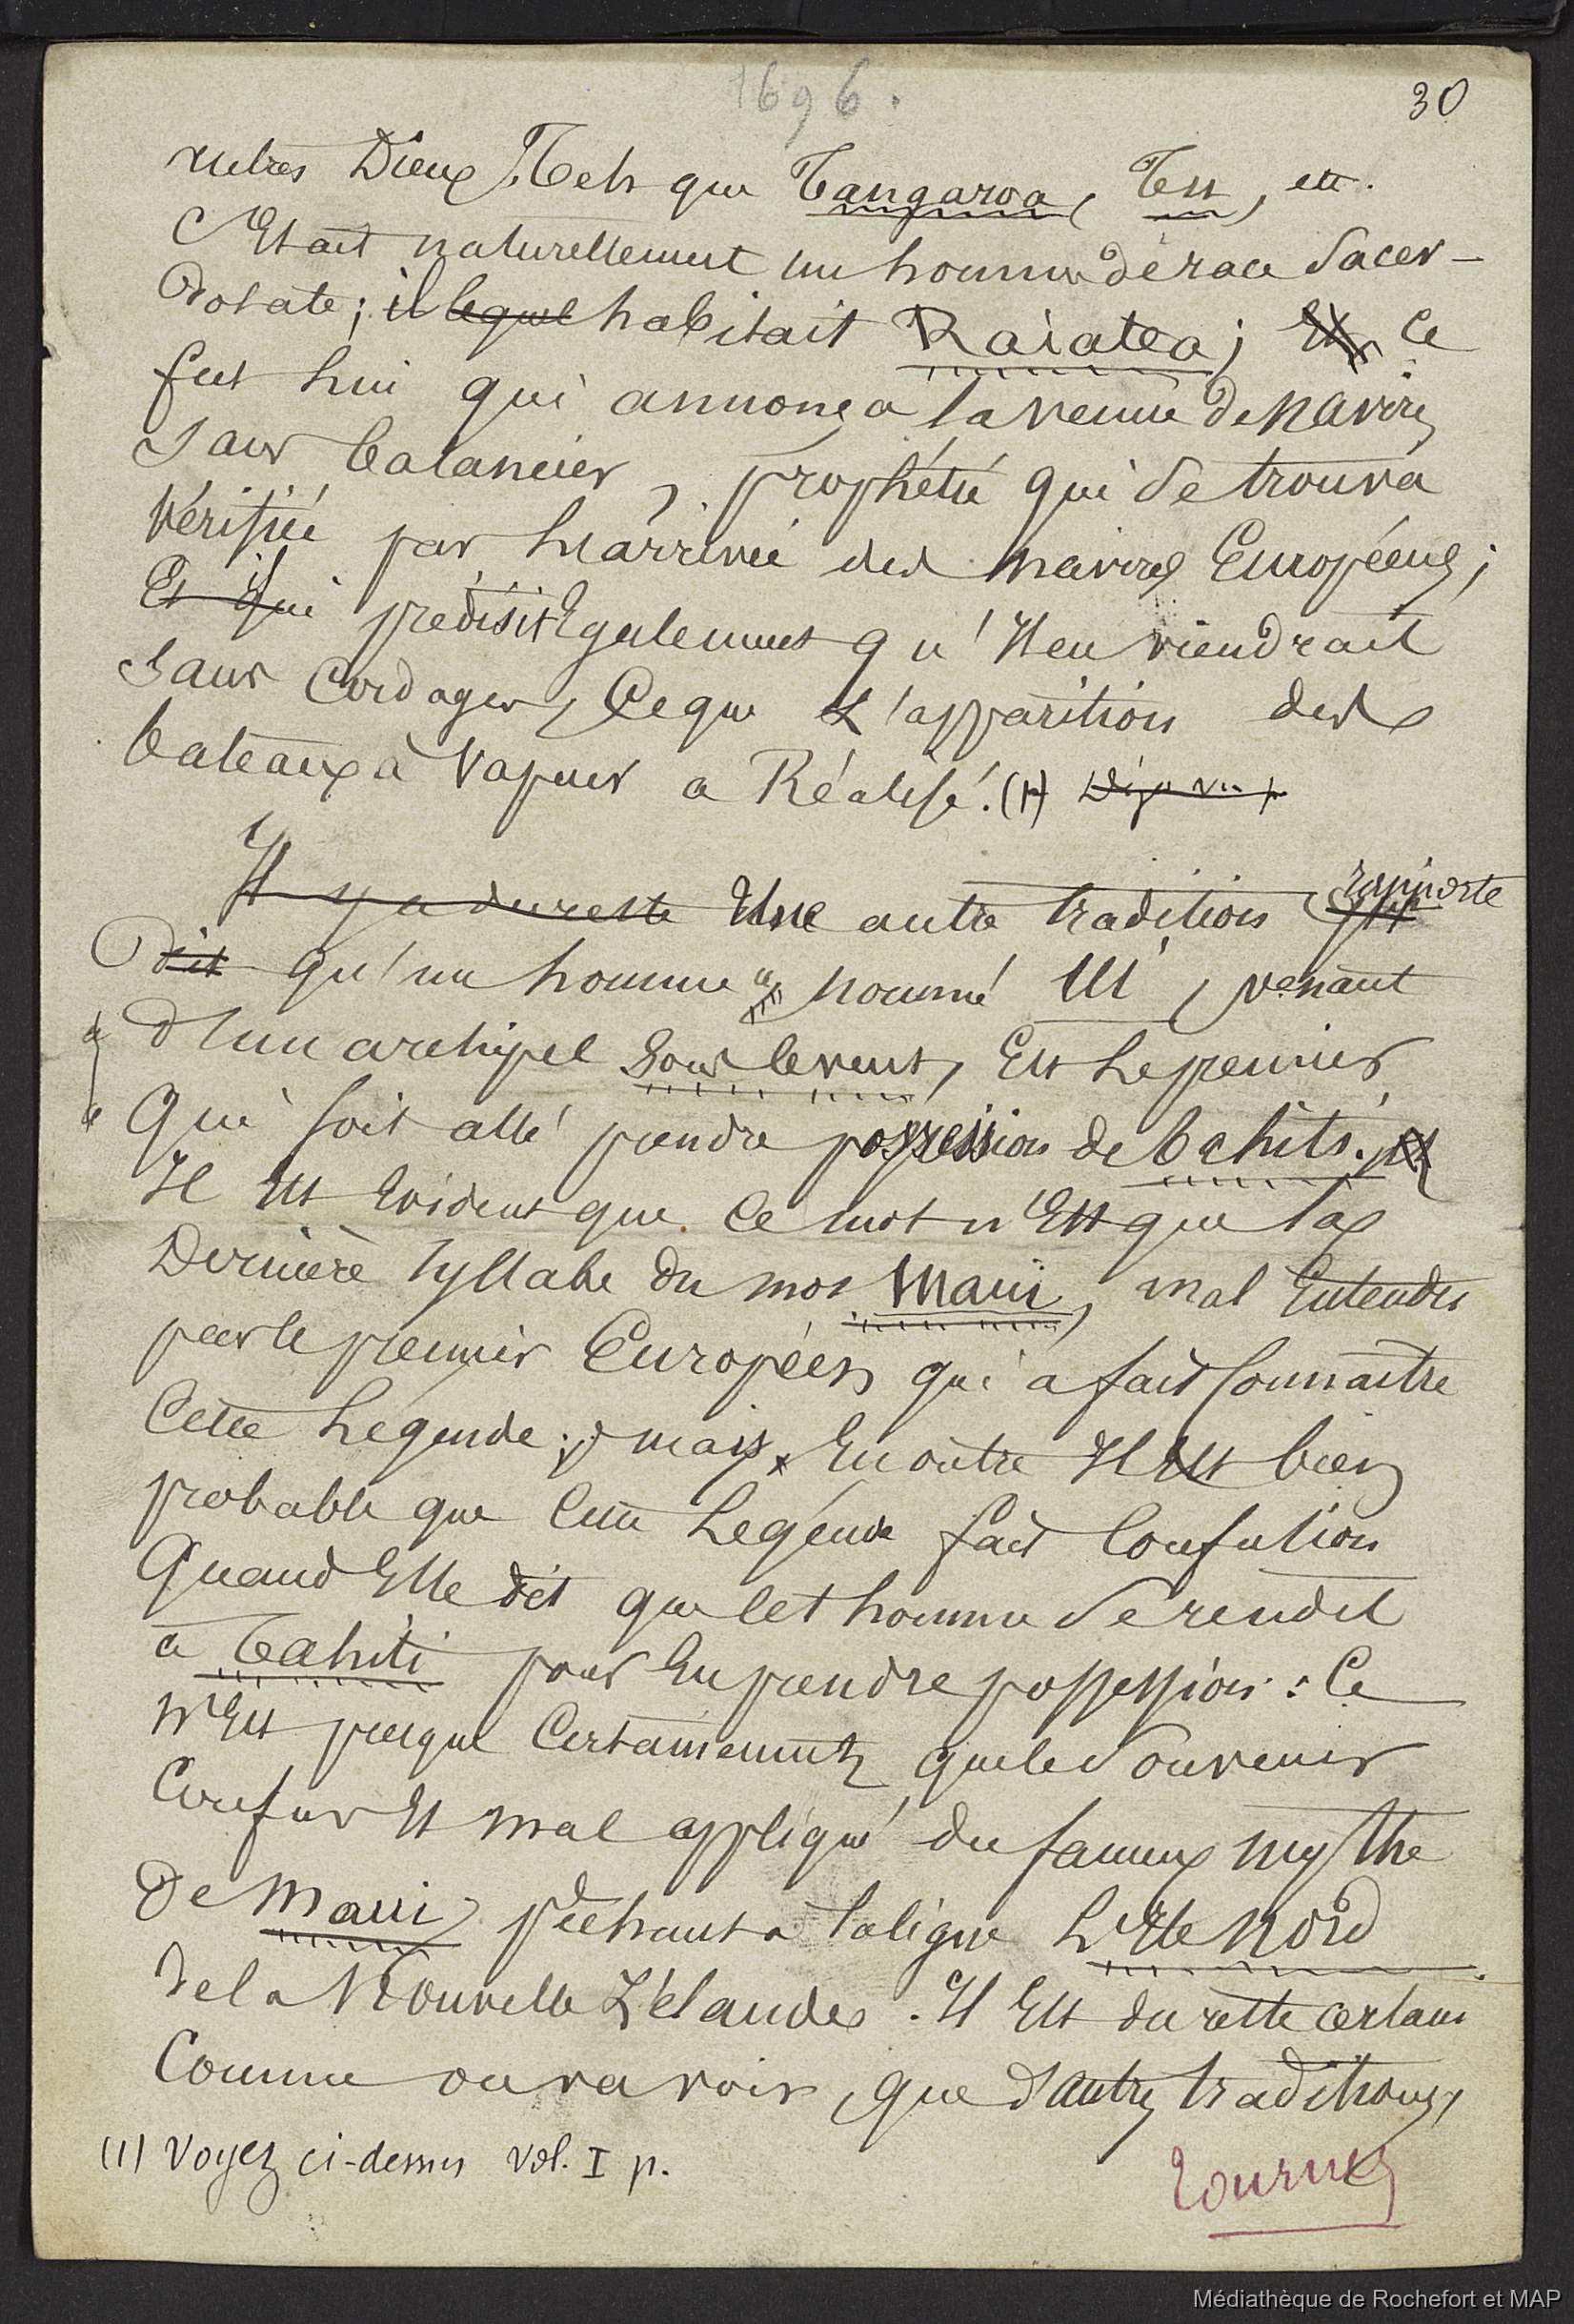 1696.
30
autres Dieux, Tels que Tangaroa, Tu, etc.
C'Etait naturellement un homme de race Sacer-
dotale; il lequel habitait Raiatea; Et Ce
fut lui qui annonça la venue de navires
Sans balancier, prophétie qui Se trouva
vérifiée par l'arrivée des navires Européens;
Et qui il prédisit Egalement qu'Il en viendrait
Sans Cordages, Ce que L'apparition des
bateaux à vapeur a Réalisé. (1) Déjà vu
Il y a du reste Une autre tradition rapporte
Dit qu'un homme " nommé Uï, venant
d'un archipel Sous le vent, Est le premier
Qui soit allé prendre possession de Tahiti.
Il Est Evident que Ce mot n'Est que la
Dernière Syllabe du mot Mauï, mal Entendu
par le premier Européen qui a fait Connaître
Cette Légende; mais En outre Il Est bien
probable que Cette Légende fait Confusion
Quand Elle dit que Cet homme Se rendit
à Tahiti pour En prendre possession: Ce
n'Est presque Certainement que le Souvenir
Confus Et mal appliqué du fameux mythe
De Maui pêchant à la ligne L'Ile Nord
de la Nouvelle Zélande. Il Est du reste certain
Comme on va voir, que d'autres traditions,
(1) Voyez ci-dessus vol. I p.
Tournez
Médiathèque de Rochefort et MAP